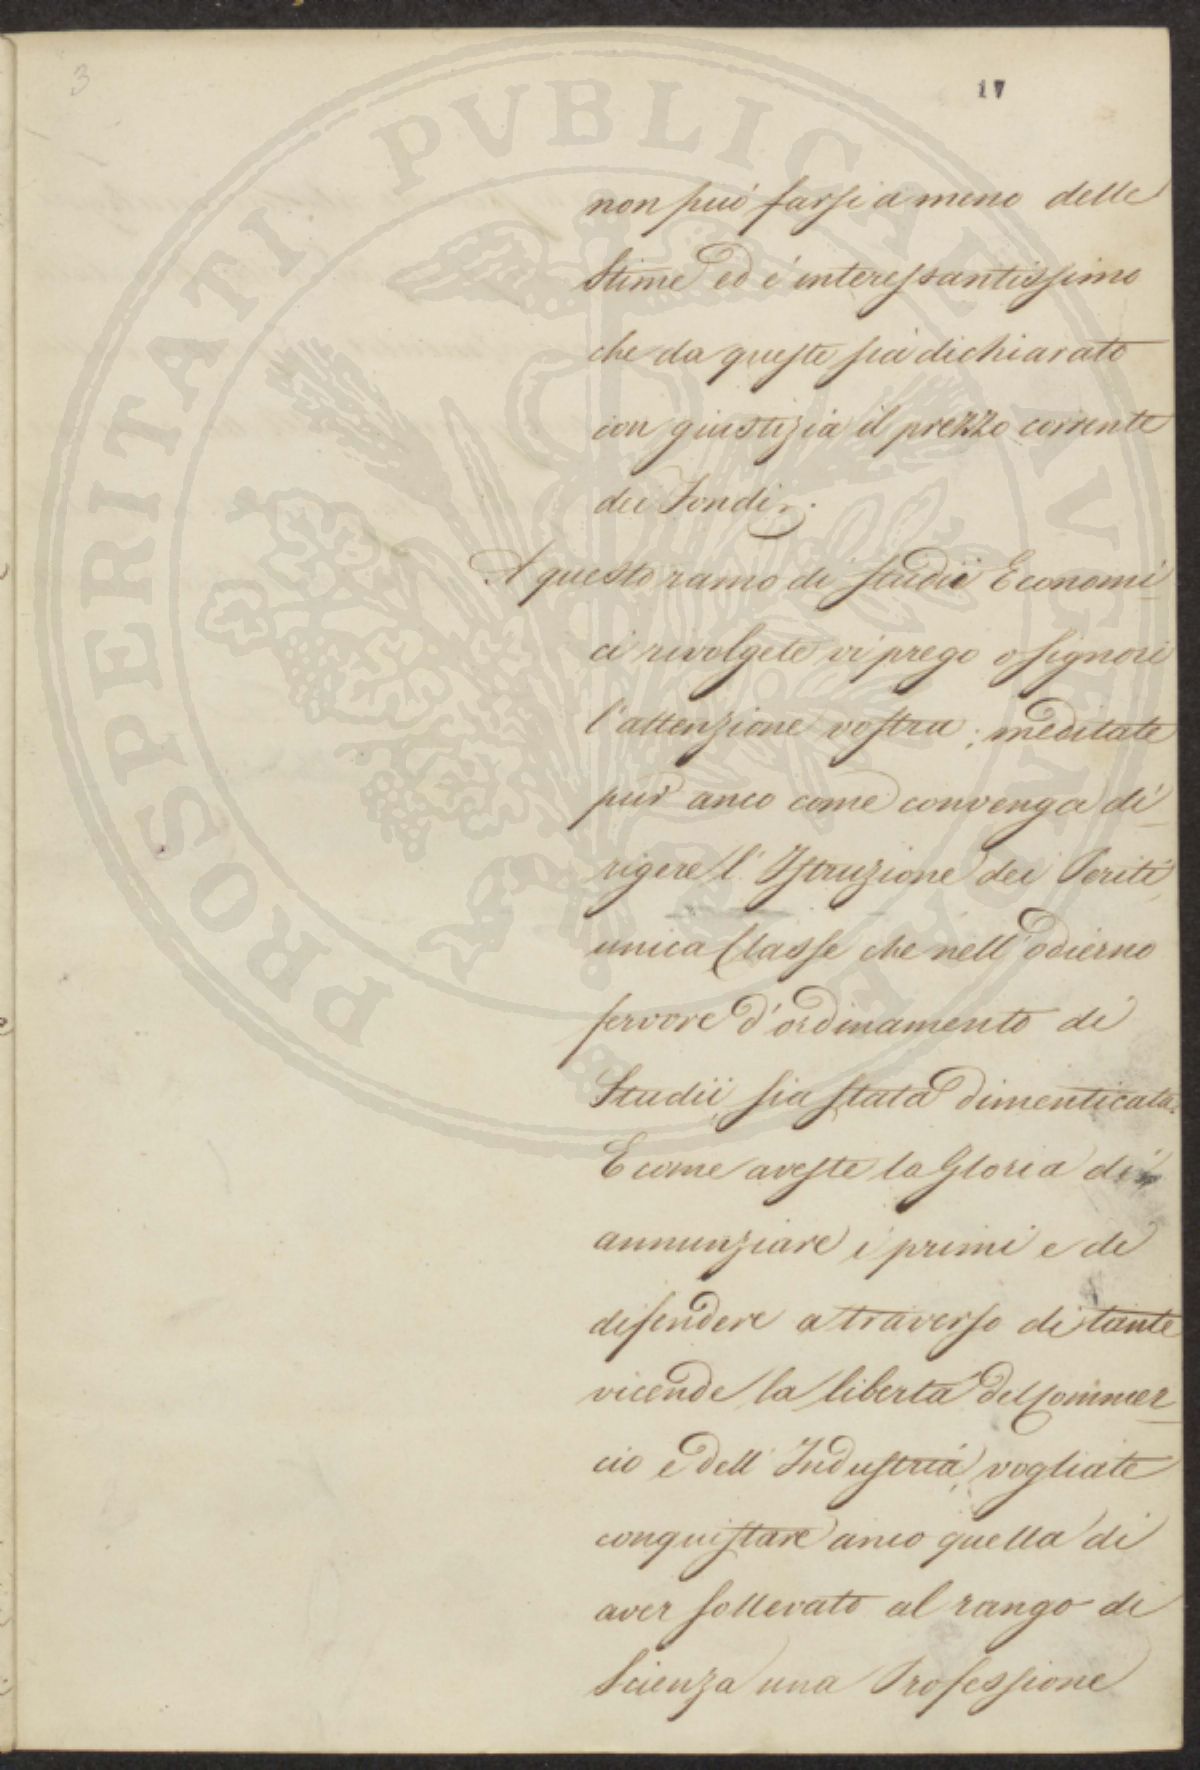 3
17
PROSPERITATI PVBLICAE AVGENDAE
non può farsi a meno delle
Stime ed é interessantissimo
che da queste sia dichiarato
con giustizia il prezzo corrente
dei Fondi.
A questo ramo di studii Economi-
ci rivolgete vi prego o signori
l'attenzione vostra; meditate
pur anco come convenga di-
rigere l'Istruzione dei Periti
unica Classe che nell'odierno
fervore d'ordinamento di
Studii, sia stata dimenticata.
E come aveste la Gloria di
annunziare i primi e di
difendere a traverso di tante
vicende la libertà del Commer-
cio e dell'Industria, vogliate
conquistare anco quella di
aver sollevato al rango di
Scienza una Professione